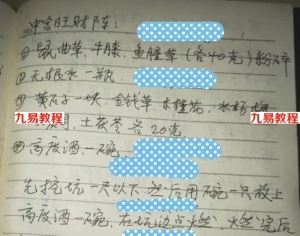 中宫旺财阵：
①鼠曲草、牛膝、鱼腥草（各40克）粉碎
②无根水一瓶
③黄石子一块、金钱草、木槿花、水杨梅
九易教程
九易教程
土茯苓各20克
④高度酒一碗
先挖坑一尺以下然后用碗一只放上
高度酒一碗，在坑边点火燃，火燃完后